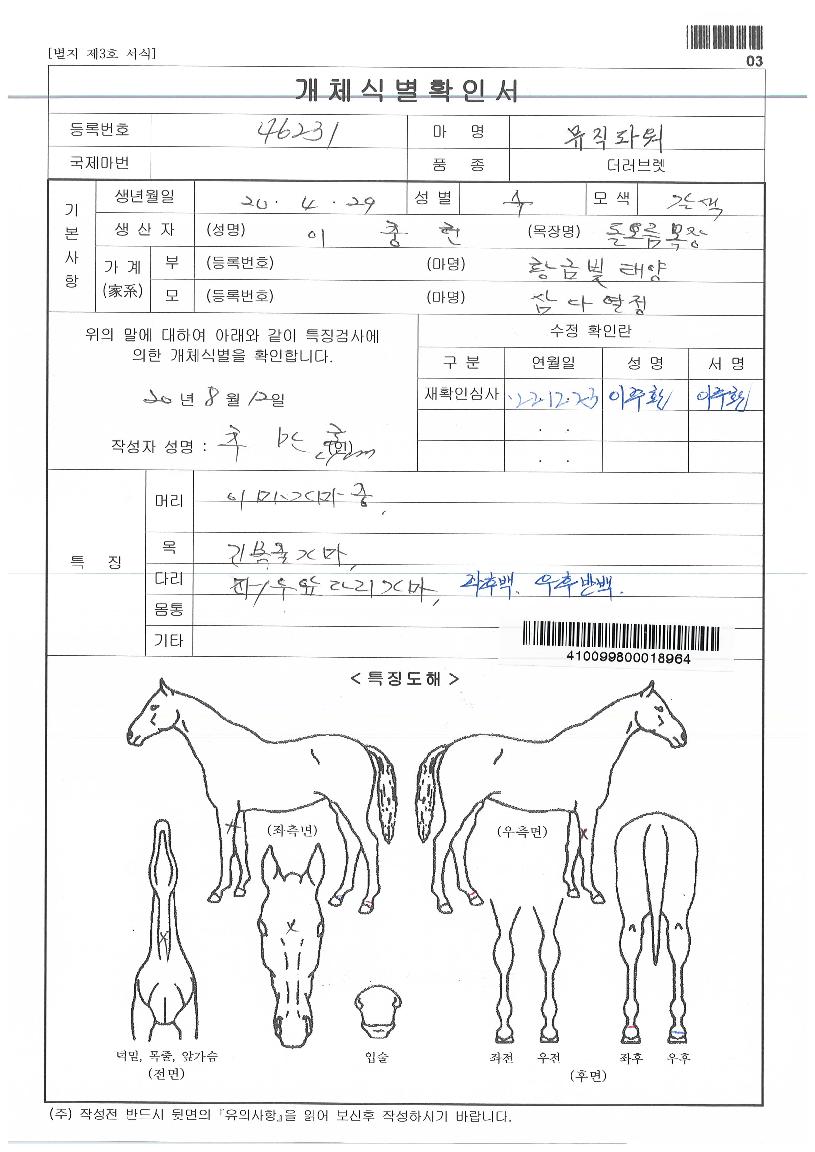 [별지 제3호 서식]
03
개체식별확인서
등록번호 46231 마 명 뮤직파워
국제마번 품 종 더러브렛
기본사항
생년월일 20. 4. 29 성 별 수 모 색 갈색
생 산 자 (성명) 이 (목장명) 돌오름목장
가 계 (家系) 부 (등록번호) (마명) 황금빛 태양
모 (등록번호) (마명) 삼다열정
위의 말에 대하여 아래와 같이 특징검사에
의한 개체식별을 확인합니다.
20년 8월 12일
작성자 성명 : (인)
수정 확인란
구 분 연월일 성 명 서 명
재확인심사 '22.12.23
. .
. .
특 징
머리 이마가마중,
목 긴목줄가마,
다리 좌/우앞다리가마, 좌후백. 우후반백.
몸통
기타
410099800018964
< 특징도해 >
(좌측면)
(우측면)
너밑, 목줄, 앞가슴
(전면)
입술
좌전 우전
좌후 우후
(후면)
(주) 작성전 반드시 뒷면의 『유의사항』을 읽어 보신후 작성하시기 바랍니다.